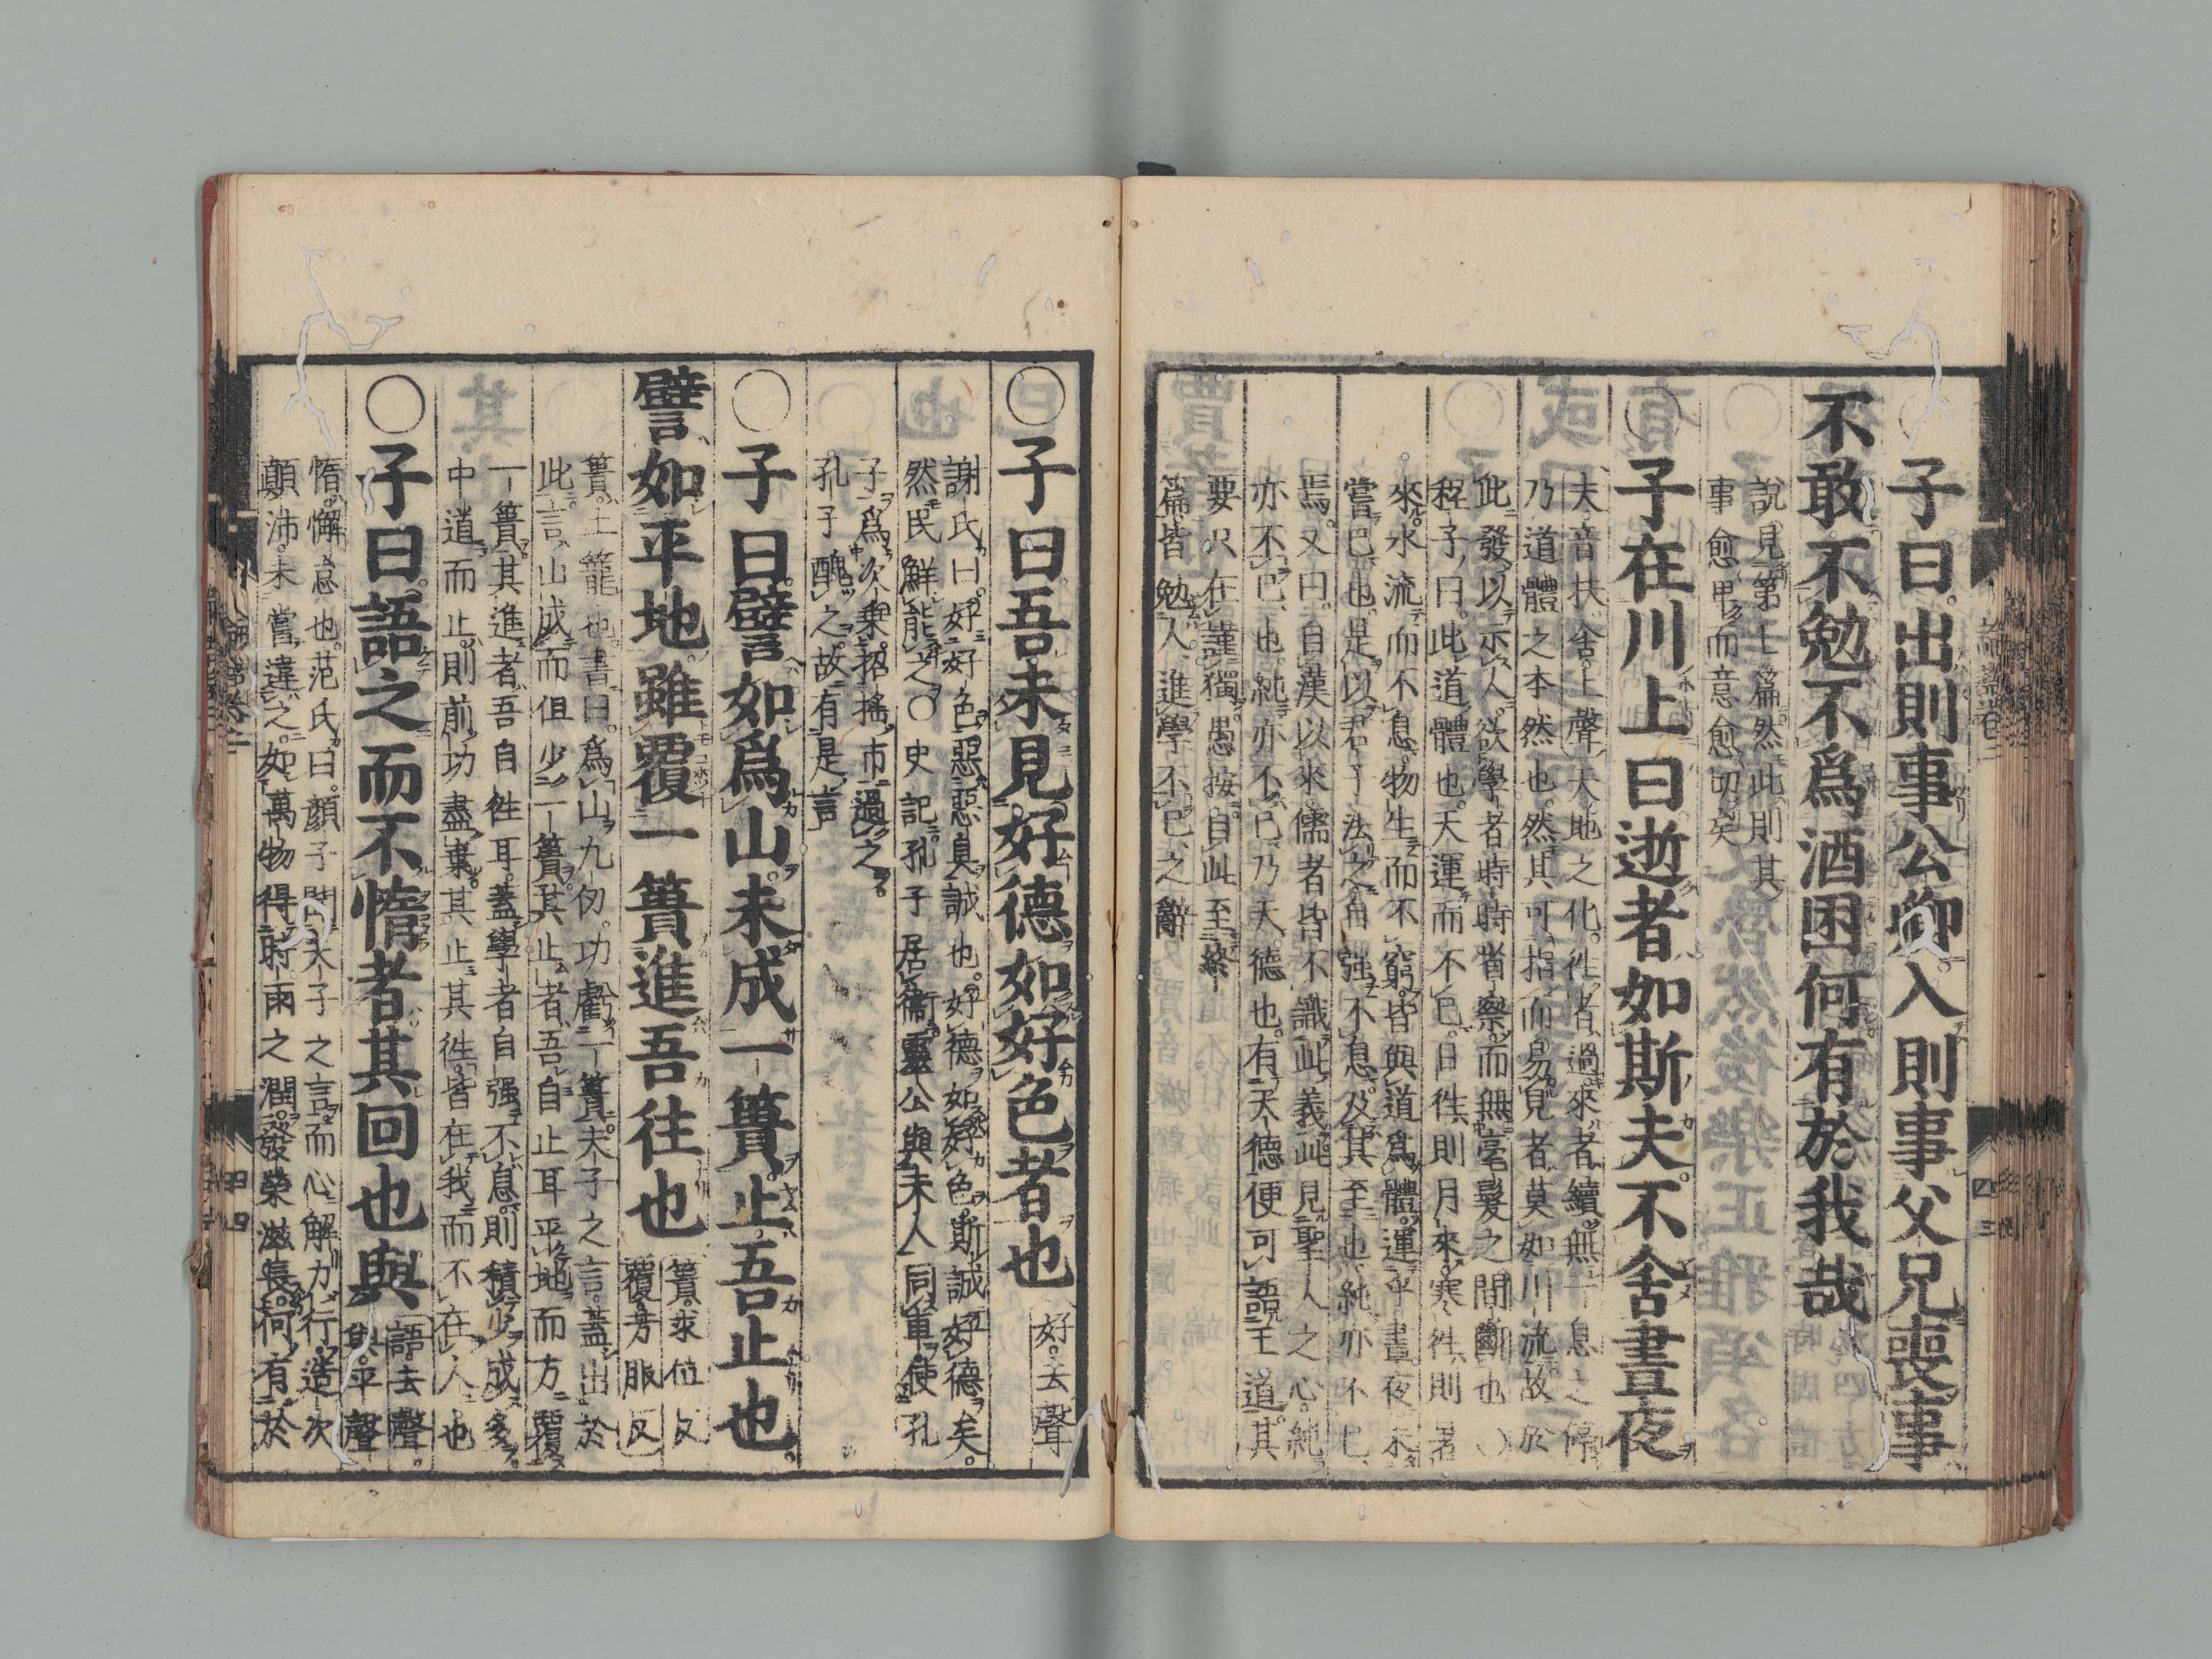 ○子曰出則事公卿入則事父兄喪事
不敢不勉不爲酒困何有於我哉
說見第七篇然此則其
事愈卑而意愈切矣
○子在川上曰逝者如斯夫不舍晝夜
夫音扶舍上聲天地之化往者過來者續無一息之停
乃道體之本然也然其可指而易見者莫如川流故於
此發以示人欲學者時時省察而無毫髮之間斷也○
程子曰此道體也天運而不已日往則月來寒往則暑
來水流而不息物生而不窮皆與道爲體運乎晝夜未
嘗已也是以君子法之自强不息及其至也純亦不已
焉又曰自漢以來儒者皆不識此義此見聖人之心純
亦不已也純亦不已乃天德也有天德便可語王道其
要只在謹獨愚按自此至終
篇皆勉人進學不已之辭
論語卷二
四三
○子曰吾未見好德如好色者也
好去聲
謝氏曰好好色惡惡臭誠也好德如好色斯誠好德矣
然民鮮能之○史記孔子居衞靈公與夫人同車使孔
子爲次乘招搖市過之
孔子醜之故有是言
○子曰譬如爲山未成一簣止吾止也
譬如平地雖覆一簣進吾往也
簣求位反
覆芳服反
簣土籠也書曰爲山九仞功虧一簣夫子之言蓋出於
此言山成而但少一簣其止者吾自止耳平地而方覆
一簣其進者吾自往耳蓋學者自强不息則積少成多
中道而止則前功盡棄其止其往皆在我而不在人也
○子曰語之而不惰者其回也與
語去聲
與平聲
惰懈怠也范氏曰顏子聞夫子之言而心解力行造次
顚沛未嘗違之如萬物得時雨之潤發榮滋長何有於
論語卷二
四四